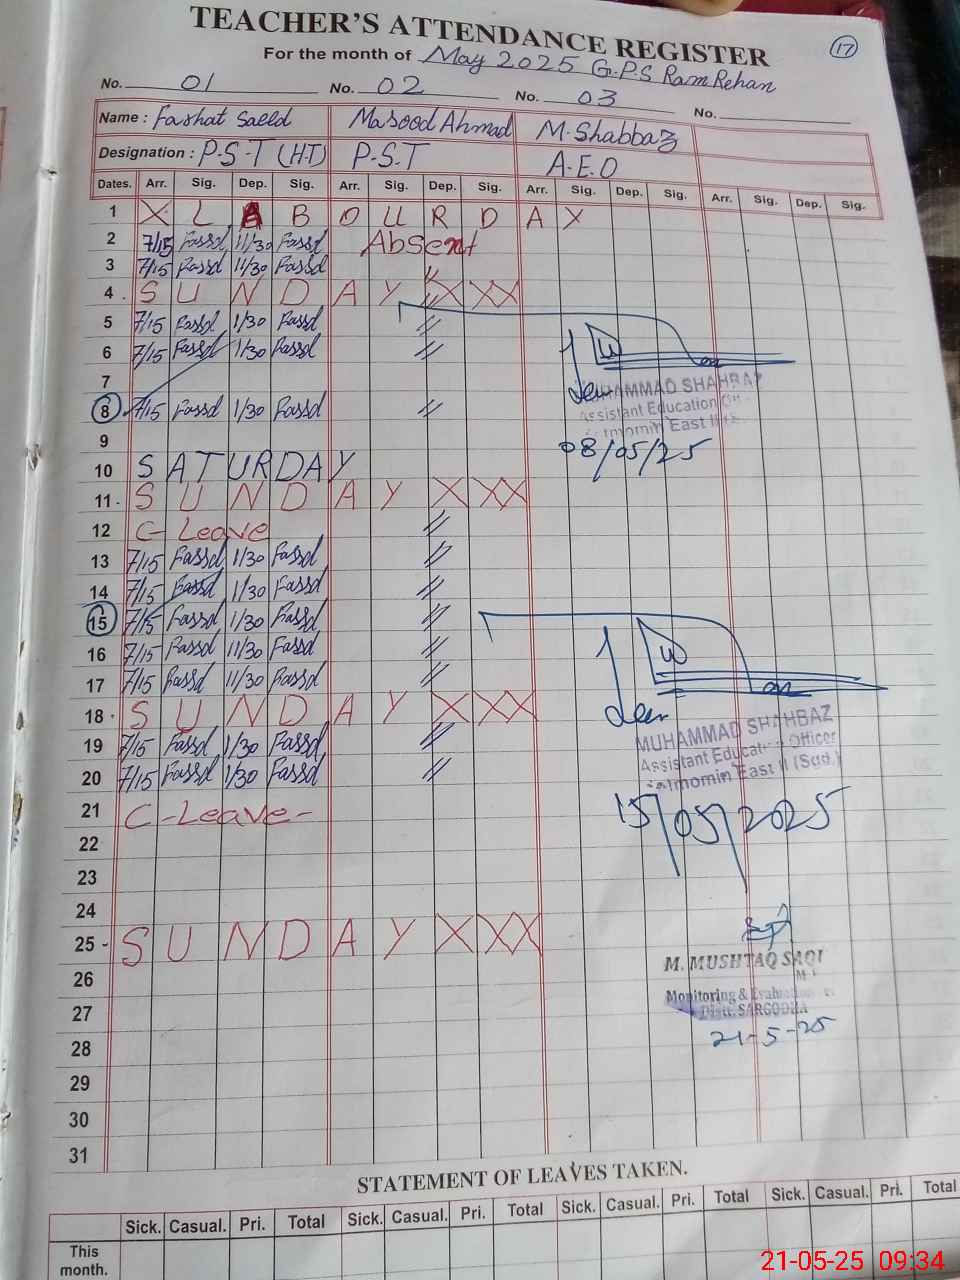 TEACHER'S ATTENDANCE REGISTER
17
For the month of May 2025 G.P.S Ram Rehan
No. 01 No. 02 No. 03 No.
Name : Farhat Saeed Masood Ahmad M. Shabbaz
Designation : P.S.T (H.T) P.S.T A.E.O
Dates. Arr. Sig. Dep. Sig. Arr. Sig. Dep. Sig. Arr. Sig. Dep. Sig. Arr. Sig. Dep. Sig.
1 X L A B O U R D A Y
2 7/15 Fassd 11/30 Fassd Absent
3 7/15 Fassd 11/30 Fassd "
4 S U N D A Y X XX
5 7/15 Fassd 1/30 Fassd "
6 7/15 Fassd 1/30 Fassd "
7
MUHAMMAD SHAHBAZ
8 7/15 Fassd 1/30 Fassd "
Assistant Education
East II
9
08/05/25
10 S A T U R D A Y
11 S U N D A Y X XX
12 C-Leave "
13 7/15 Fassd 1/30 Fassd "
14 7/15 Fassd 1/30 Fassd "
15 7/15 Fassd 1/30 Fassd "
16 7/15 Fassd 11/30 Fassd "
17 7/15 Fassd 11/30 Fassd "
18 S U N D A Y X XX
19 7/15 Fassd 1/30 Fassd "
MUHAMMAD SHAHBAZ
Assistant Education Officer
20 7/15 Fassd 1/30 Fassd "
East II (Sgd.)
21 C-Leave-
15/05/2025
22
23
24
25 S U N D A Y X XX
M. MUSHTAQ SAQI
26
Monitoring &
27 Distt. SARGODHA
21-5-25
28
29
30
31
STATEMENT OF LEAVES TAKEN.
Sick. Casual. Pri. Total Sick. Casual. Pri. Total Sick. Casual. Pri. Total Sick. Casual. Pri. Total
This month.
21-05-25 09:34